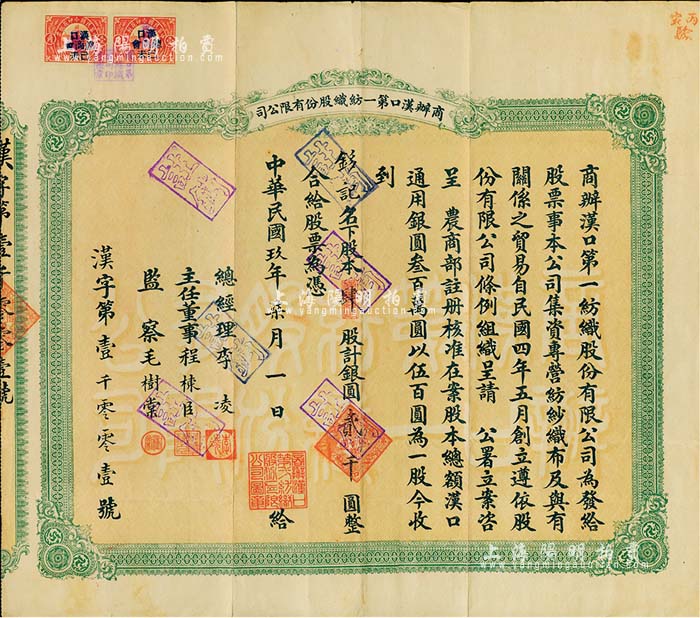 商辦漢口第一紡織股份有限公司
商辦漢口第一紡織股份有限公司為發給
股票事本公司集資專營紡紗織布及與有
關係之貿易自民國四年五月創立遵依股
份有限公司條例組織呈請 公署立案咨
呈 農商部註册核准在案股本總額漢口
通用銀圓叁百萬圓以伍百圓為一股今收
到
記名下股本肆股計銀圓貳千圓整
合給股票為憑
中華民國玖年柒月一日給
總經理李凌
主任董事程棟臣
監察毛樹棠
漢字第壹千零零壹號
漢字第壹千零零壹號
上海陽明拍賣
www.yangmingauction.com
上海陽明拍賣
www.yangmingauction.com
上海陽明拍賣
www.yangmingauction.com